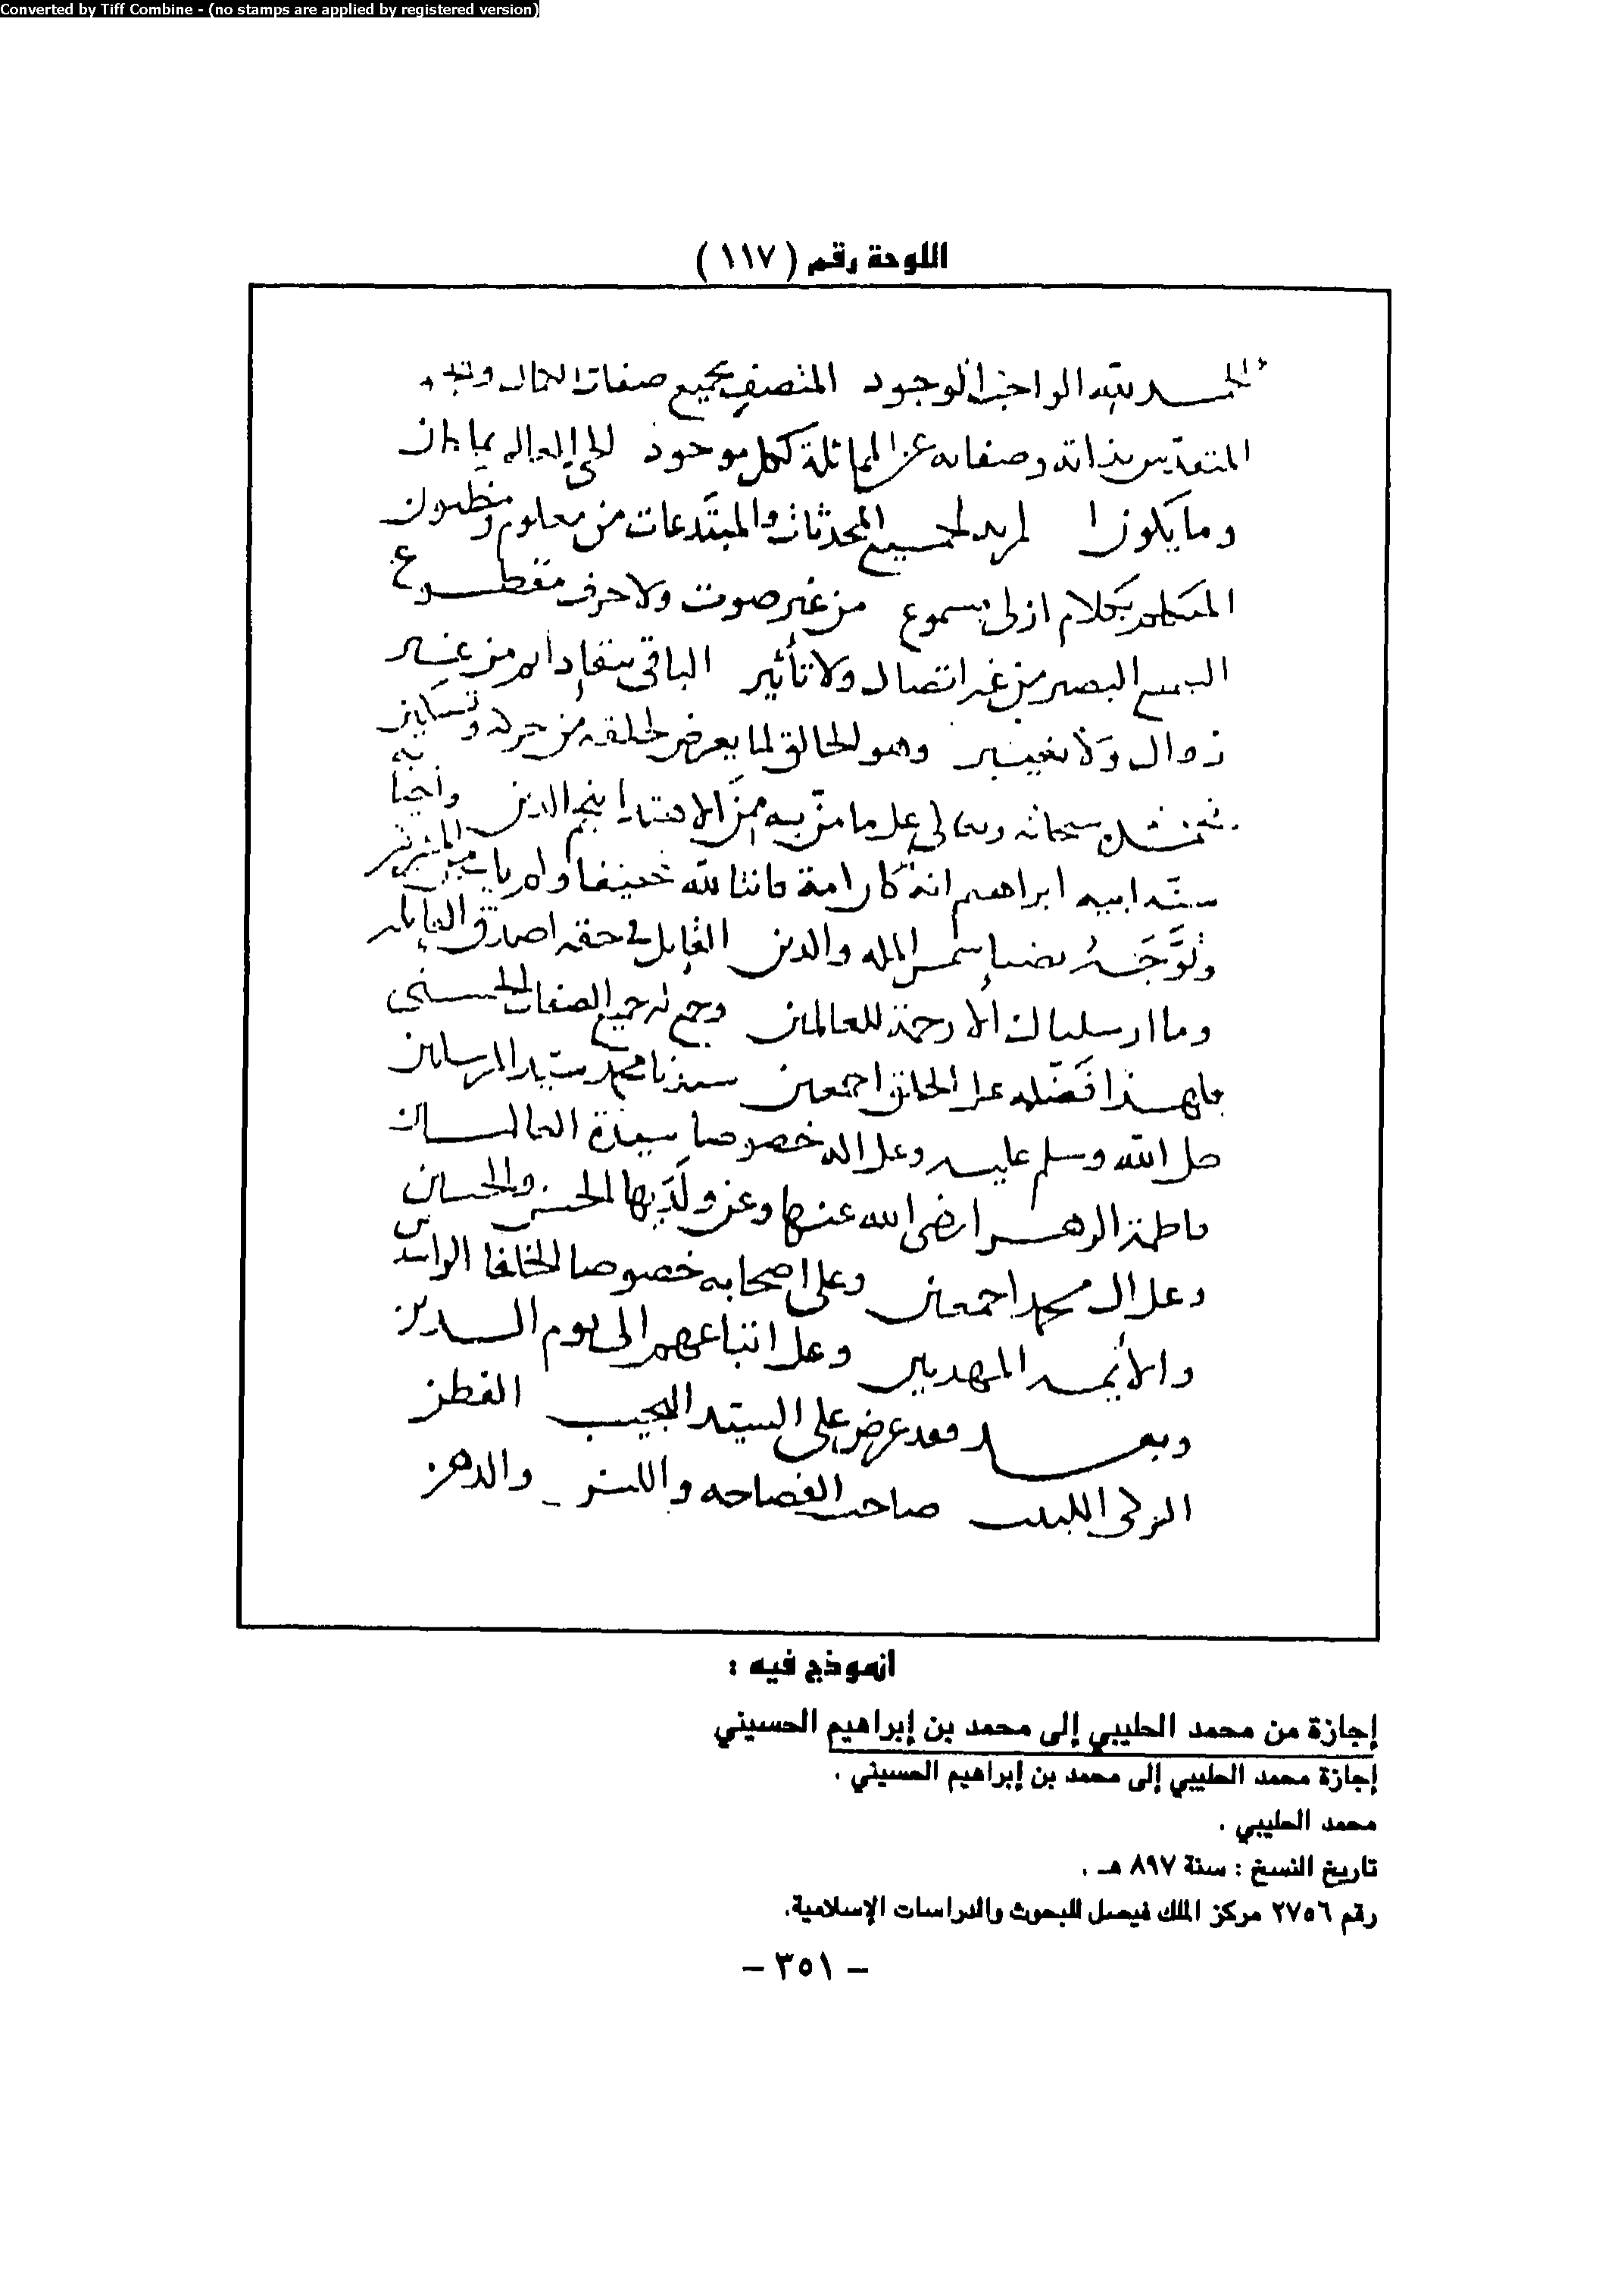 Converted by Tiff Combine - (no stamps are applied by registered version)
اللوحة رقم ( ١١٧ )
الحمد لله الواجب الوجود المتصف بجميع صفات الكمال
المتقدس بذاته وصفاته عن المماثلة لكل موجود الحي العالم بما كان
وما يكون المريد لجميع المحدثات والمبتدعات من معلوم ومظنون
المتكلم بكلام ازلي مسموع من غير صوت ولا حرف مقطوع
السميع البصير من غير اتصال ولا تأثير الباقي من غير
زوال ولا تغيير وهو الخالق لما يعرض لخلقه من حركة وتسكين
سبحانه وتعالى على ما من به من الاهتداء بنجم الدين
ابيه ابراهيم انه كان امة قانتا لله حنيفا ولم يك من المشركين
شمس المله والدين القايل في حقه اصدق القايلين
وما ارسلناك الا رحمة للعالمين وجمع له جميع الصفات الحسنى
فبهذا فضله على الخلق اجمعين سيدنا محمد سيد المرسلين
صلى الله وسلم عليه وعلى اله خصوصا سيدة
فاطمة الزهرا رضي الله عنها وعن ولديها الحسن والحسين
وعلى ال محمد اجمعين وعلى اصحابه خصوصا الخلفا الراشدين
والأيمه المهديين وعلى اتباعهم الى يوم الدين
وبعد فقد عرض علي السيد النجيب الفطن
الزكي اللبيب صاحب الفصاحه واللسن والدهن
انموذج فيه :
إجازة من محمد الحليبي إلى محمد بن إبراهيم الحسيني
إجازة محمد الحليبي إلى محمد بن إبراهيم الحسيني .
محمد الحليبي .
تاريخ النسخ : سنة ٨٩٧ هـ .
رقم ٢٧٥٦ مركز الملك فيصل للبحوث والدراسات الإسلامية.
– ٣٥١ –